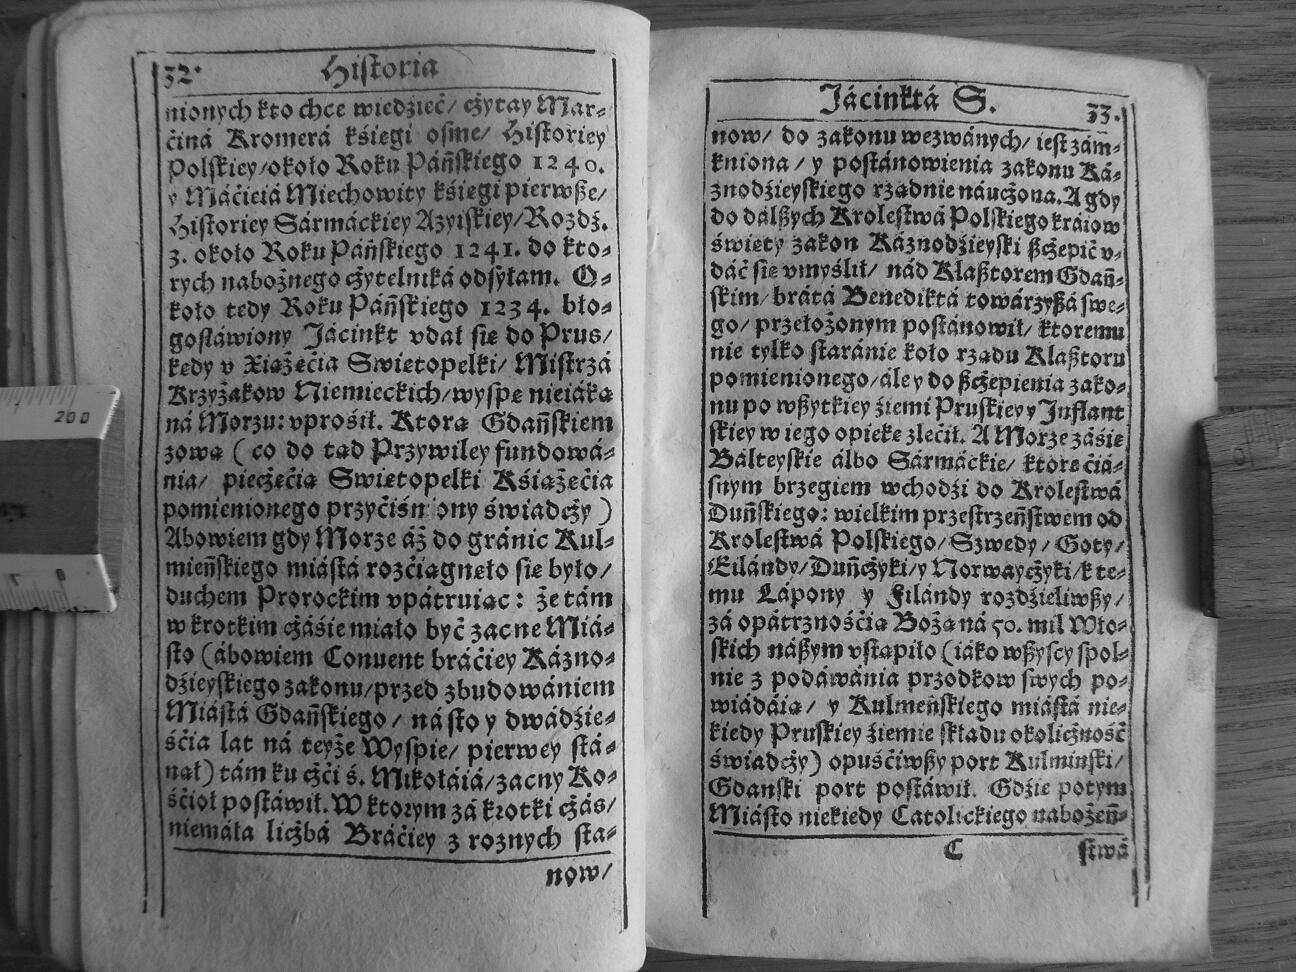 32. Historia
nionych kto chce wiedźieć/ czytay Mar-
ćiná Kromerá kśięgi osme/ Historiey
Polskiey/około Roku Páńskiego 1240.
y Máćieiá Miechowity kśięgi pierwsze/
Historiey Sármáckiey Azyiskiey/Rozdź.
3. około Roku Páńskiego 1241. do kto-
rych nabożnego czytelniká odsyłam. O-
koło tedy Roku Páńskiego 1234. bło-
gosłáwiony Jácinkt vdał się do Prus/
kędy v Xiążęćia Swiętopełki/ Mistrzá
Krzyżakow Niemieckich/wyspę nieiáką
ná Morzu: vprośił. Ktorą Gdáńskiem
zową (co do tąd Przywiley fundowá-
nia/ pieczęćią Swiętopełki Kśiążęćia
pomienionego przyćiśniony świadczy)
Abowiem gdy Morze áż do gránic Kul-
mieńskiego miástá rozćiągnęło się było/
duchem Prorockim vpátruiąc: że tám
w krotkim cżáśie miało być zacne Miá-
sto (ábowiem Conuent bráćiey Kázno-
dźieyskiego zakonu/przed zbudowániem
Miástá Gdáńskiego/ ná sto y dwádźie-
śćia lat ná teyże Wyspie/ pierwey stá-
nął) tám ku cżći ś. Mikołáiá/zacny Ko-
śćioł postáwił. W ktorym zá krotki cżás/
niemáła liczbá Bráćiey z roznych sta-
now/
Jácinktá S. 33.
now/ do zakonu wezwánych/ iest zám-
kniona/ y postánowienia zakonu Ká-
znodźieyskiego rządnie náuczona. A gdy
do dálszych Krolestwá Polskiego kráiow
święty zakon Káznodźieyski szczepić v-
dáć się vmyślił/ nád Klasztorem Gdáń-
skim/ brátá Benediktá towárzyszá swe-
go/ przełożonym postánowił/ ktoremu
nie tylko staránie koło rządu Klasztoru
pomienionego/ále y do szczepienia zako-
nu po wszytkiey źiemi Pruskiey y Inflant
skiey w iego opiekę zlećił. A Morze záśię
Bálteyskie álbo Sármáckie/ ktore ćiá-
snym brzegiem wchodźi do Krolestwá
Duńskiego: wielkim przestrzeństwem od
Krolestwá Polskiego/ Szwedy/ Goty/
Eilándy/Duńczyki/y Norwayczyki/k te-
mu Lápony y Filándy rozdźieliwszy/
zá opátrznośćią Bożą ná 50. mil Wło-
skich nászym vstąpiło (iáko wszyscy spol-
nie z podáwánia przodkow swych po-
wiádáią/ y Kulmeńskiego miástá nie-
kiedy Pruskiey źiemie składu okoliczność
świadczy) opuśćiwszy port Kulmiński/
Gdański port postáwił. Gdźie potym
Miásto niekiedy Catolickiego nabożeń-
C stwá